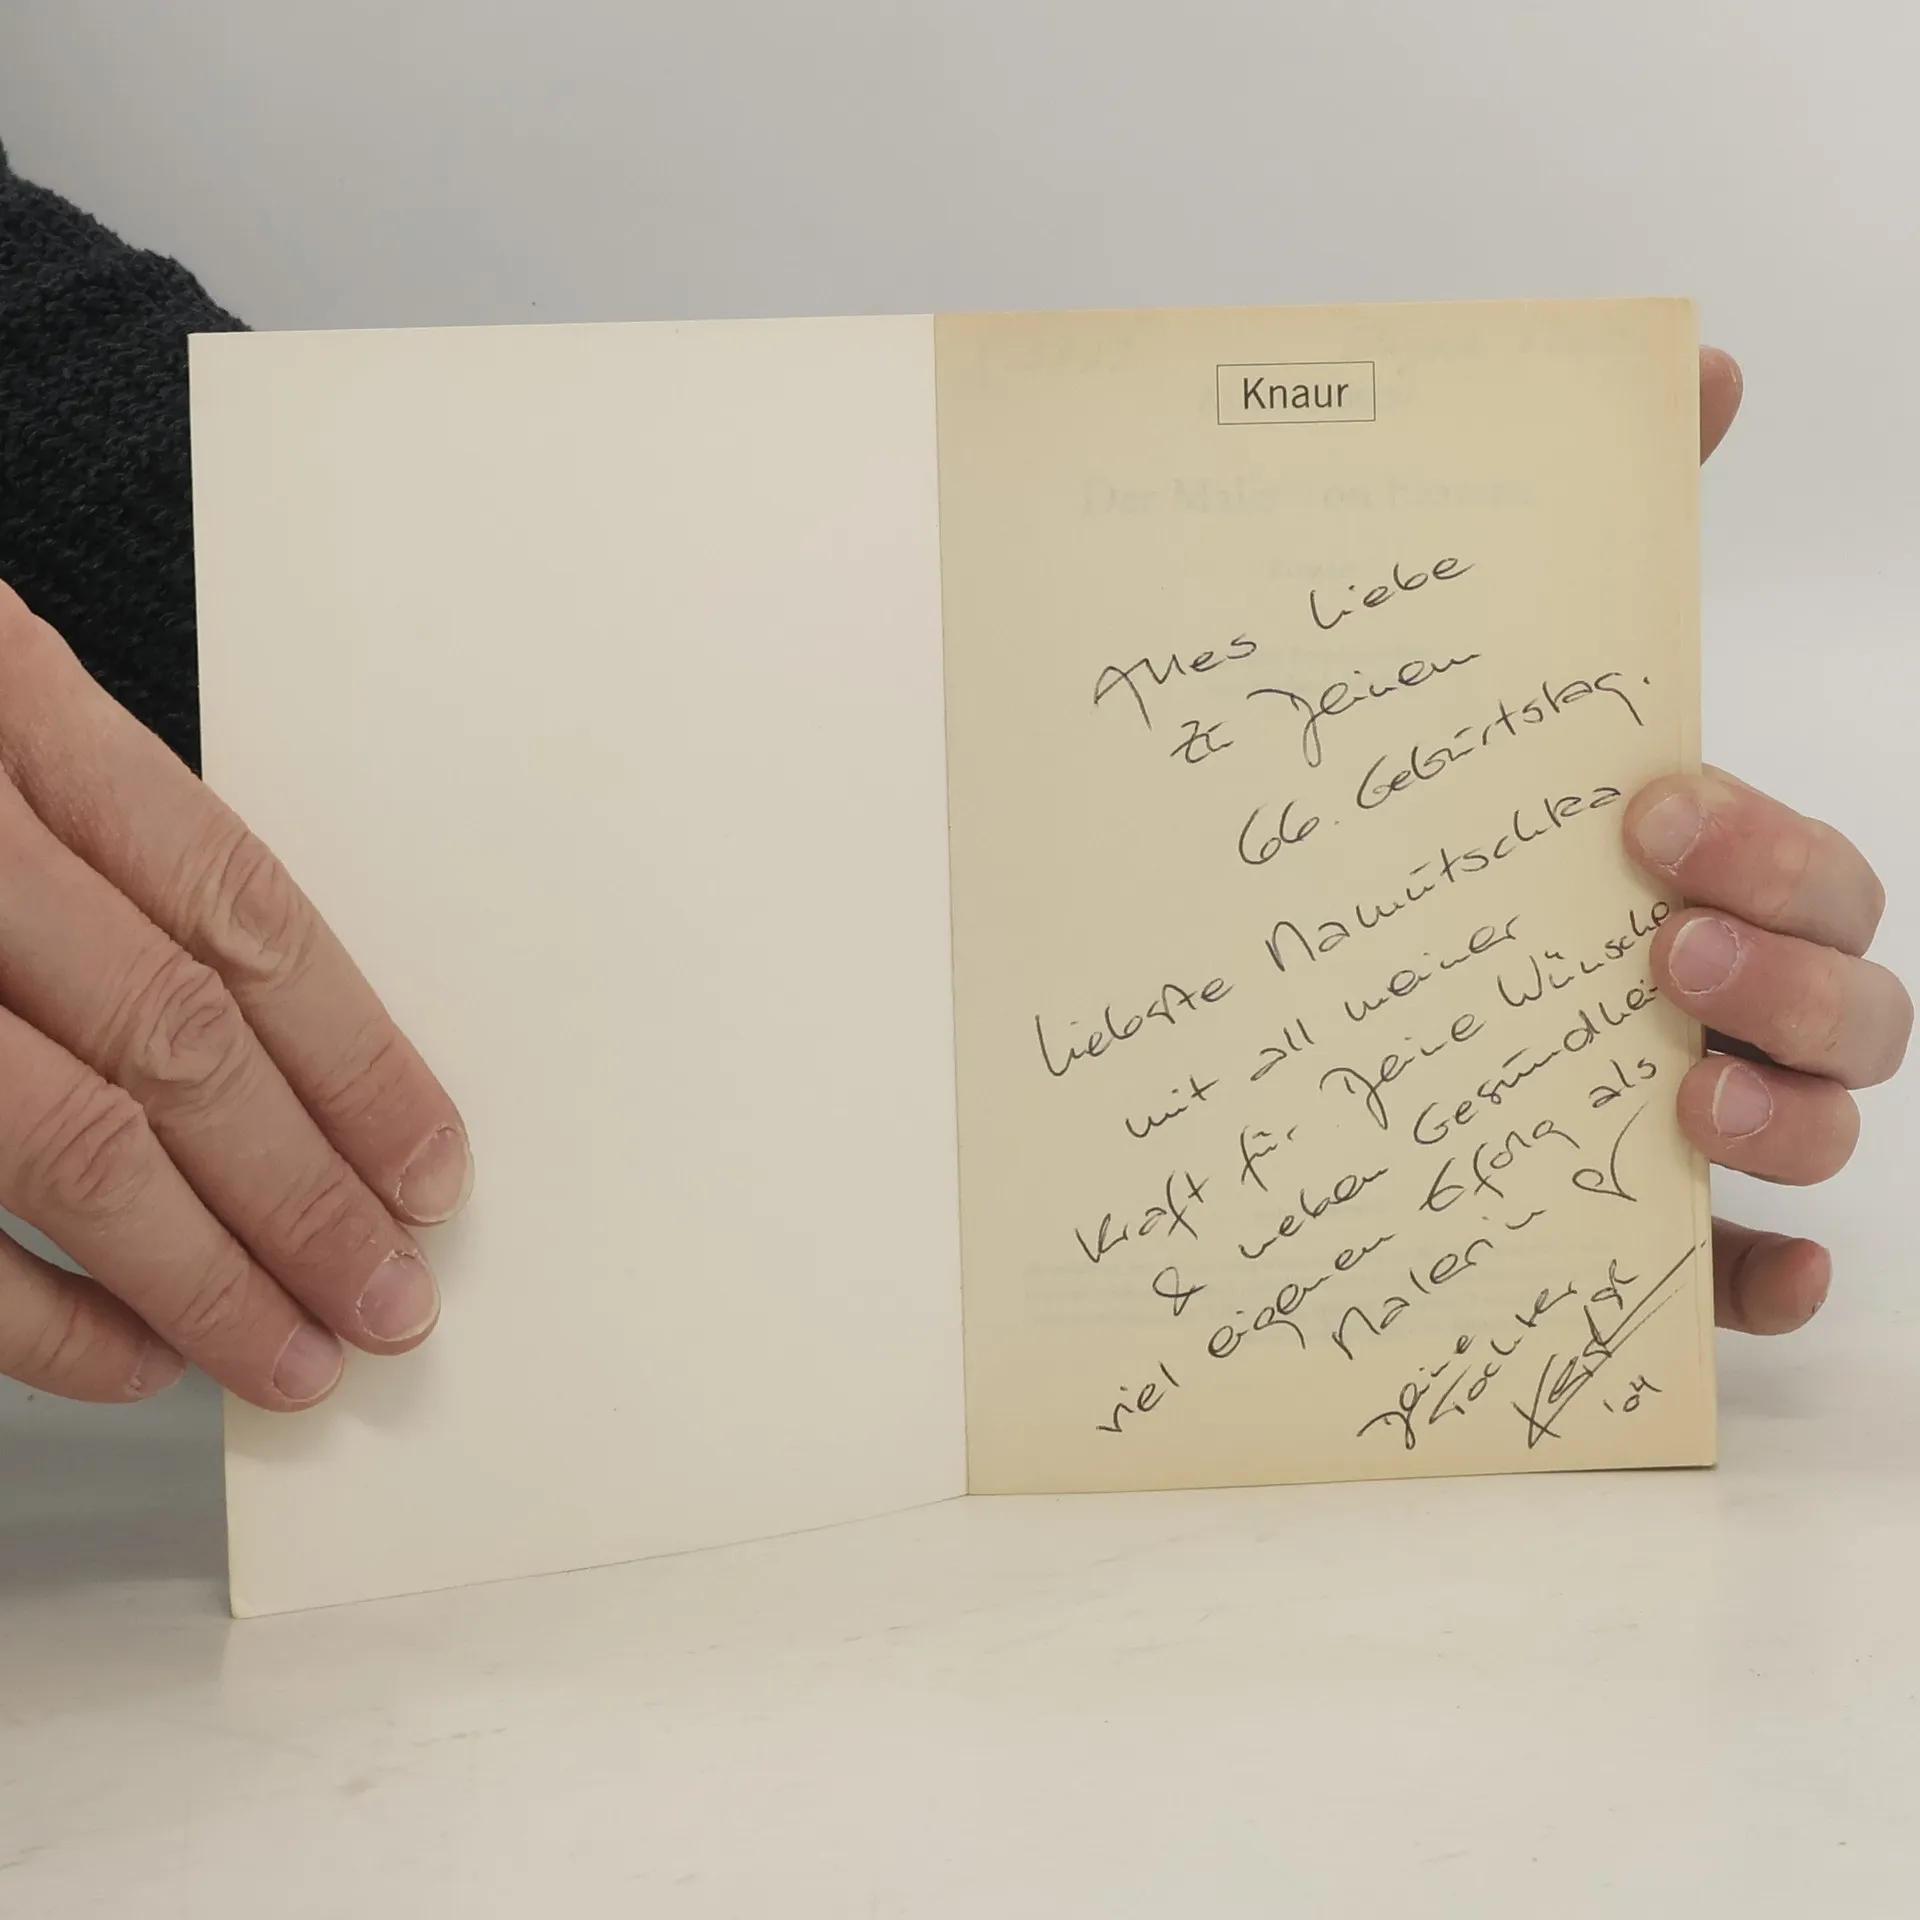 Knaur
Alles Liebe
zu Deinem
66. Geburtstag.
Liebste Mamutschka
mit all meiner
Kraft für Deine Wünsche
& neben Gesundhei
viel eigenen Erfolg als
Malerin
Deine
Tochter
'04